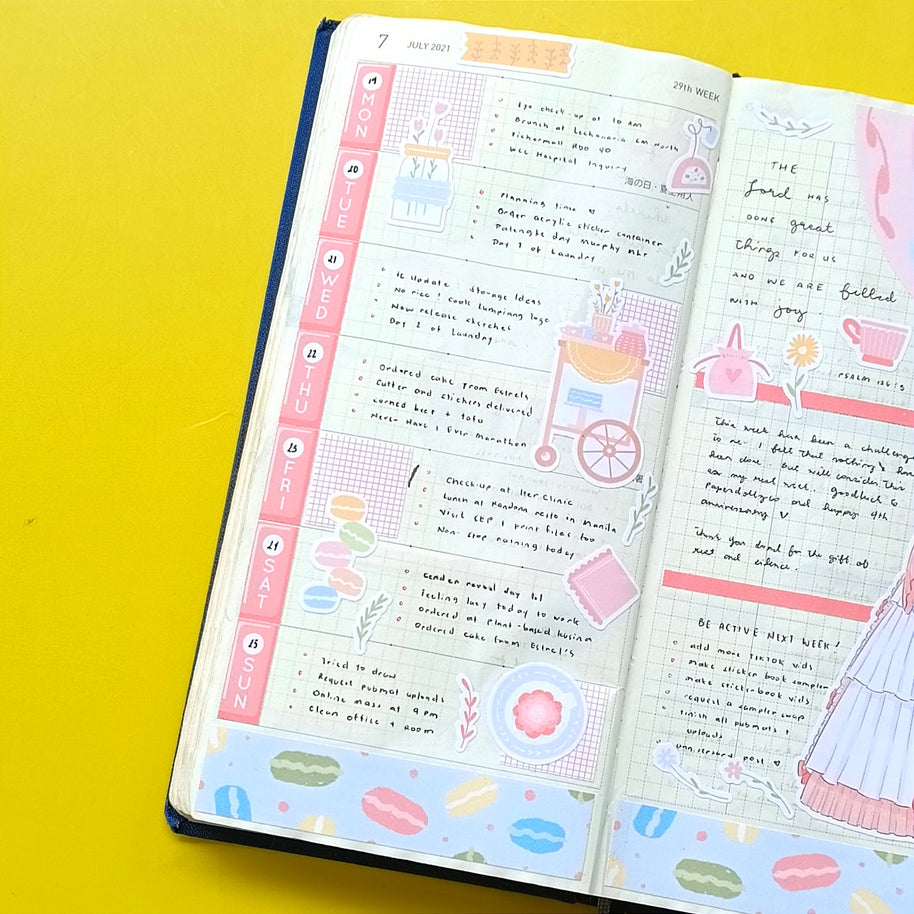 7 JULY 2021
29th WEEK
19
MON
Eye check-up at 10 AM
Brunch at
Hospital Inquiry
海の日・
20
TUE
Planning time
Order acrylic sticker container
Palengke day Murphy Mkt
Day 1 of Laundry
21
WED
Storage Ideas
No rice! Cook lumpiang
New release sketches
Day 2 of Laundry
22
THU
Ordered cake from Estrels
Cutter and stickers delivered
Corned beef + tofu
Never Have I Ever Marathon
23
FRI
Check-up at Her Clinic
Lunch at Random resto in Manila
Visit SFP! Print files too
Non-stop raining today
24
SAT
Gender reveal day lol
Feeling lazy today to work
Ordered at plant-based
Ordered cake from Estrel's
25
SUN
Tried to draw
Request pubmat uploads
Online mass at 9 pm
Clean office + room
THE
Lord HAS
DONE great
things FOR US
AND WE ARE filled
WITH joy.
PSALM 126:3
This week has been a challenge
is me. I felt that nothing's
been done. but will consider this
as my rest week. goodluck &
paperdollyco and happy 4th
anniversary
Thank you Lord for the gift of
rest and silence.
BE ACTIVE NEXT WEEK!
add more TikTok vids
make sticker book sampler
make sticker book vids
request a sampler swap
finish all pubmats +
uploads
anniversary post